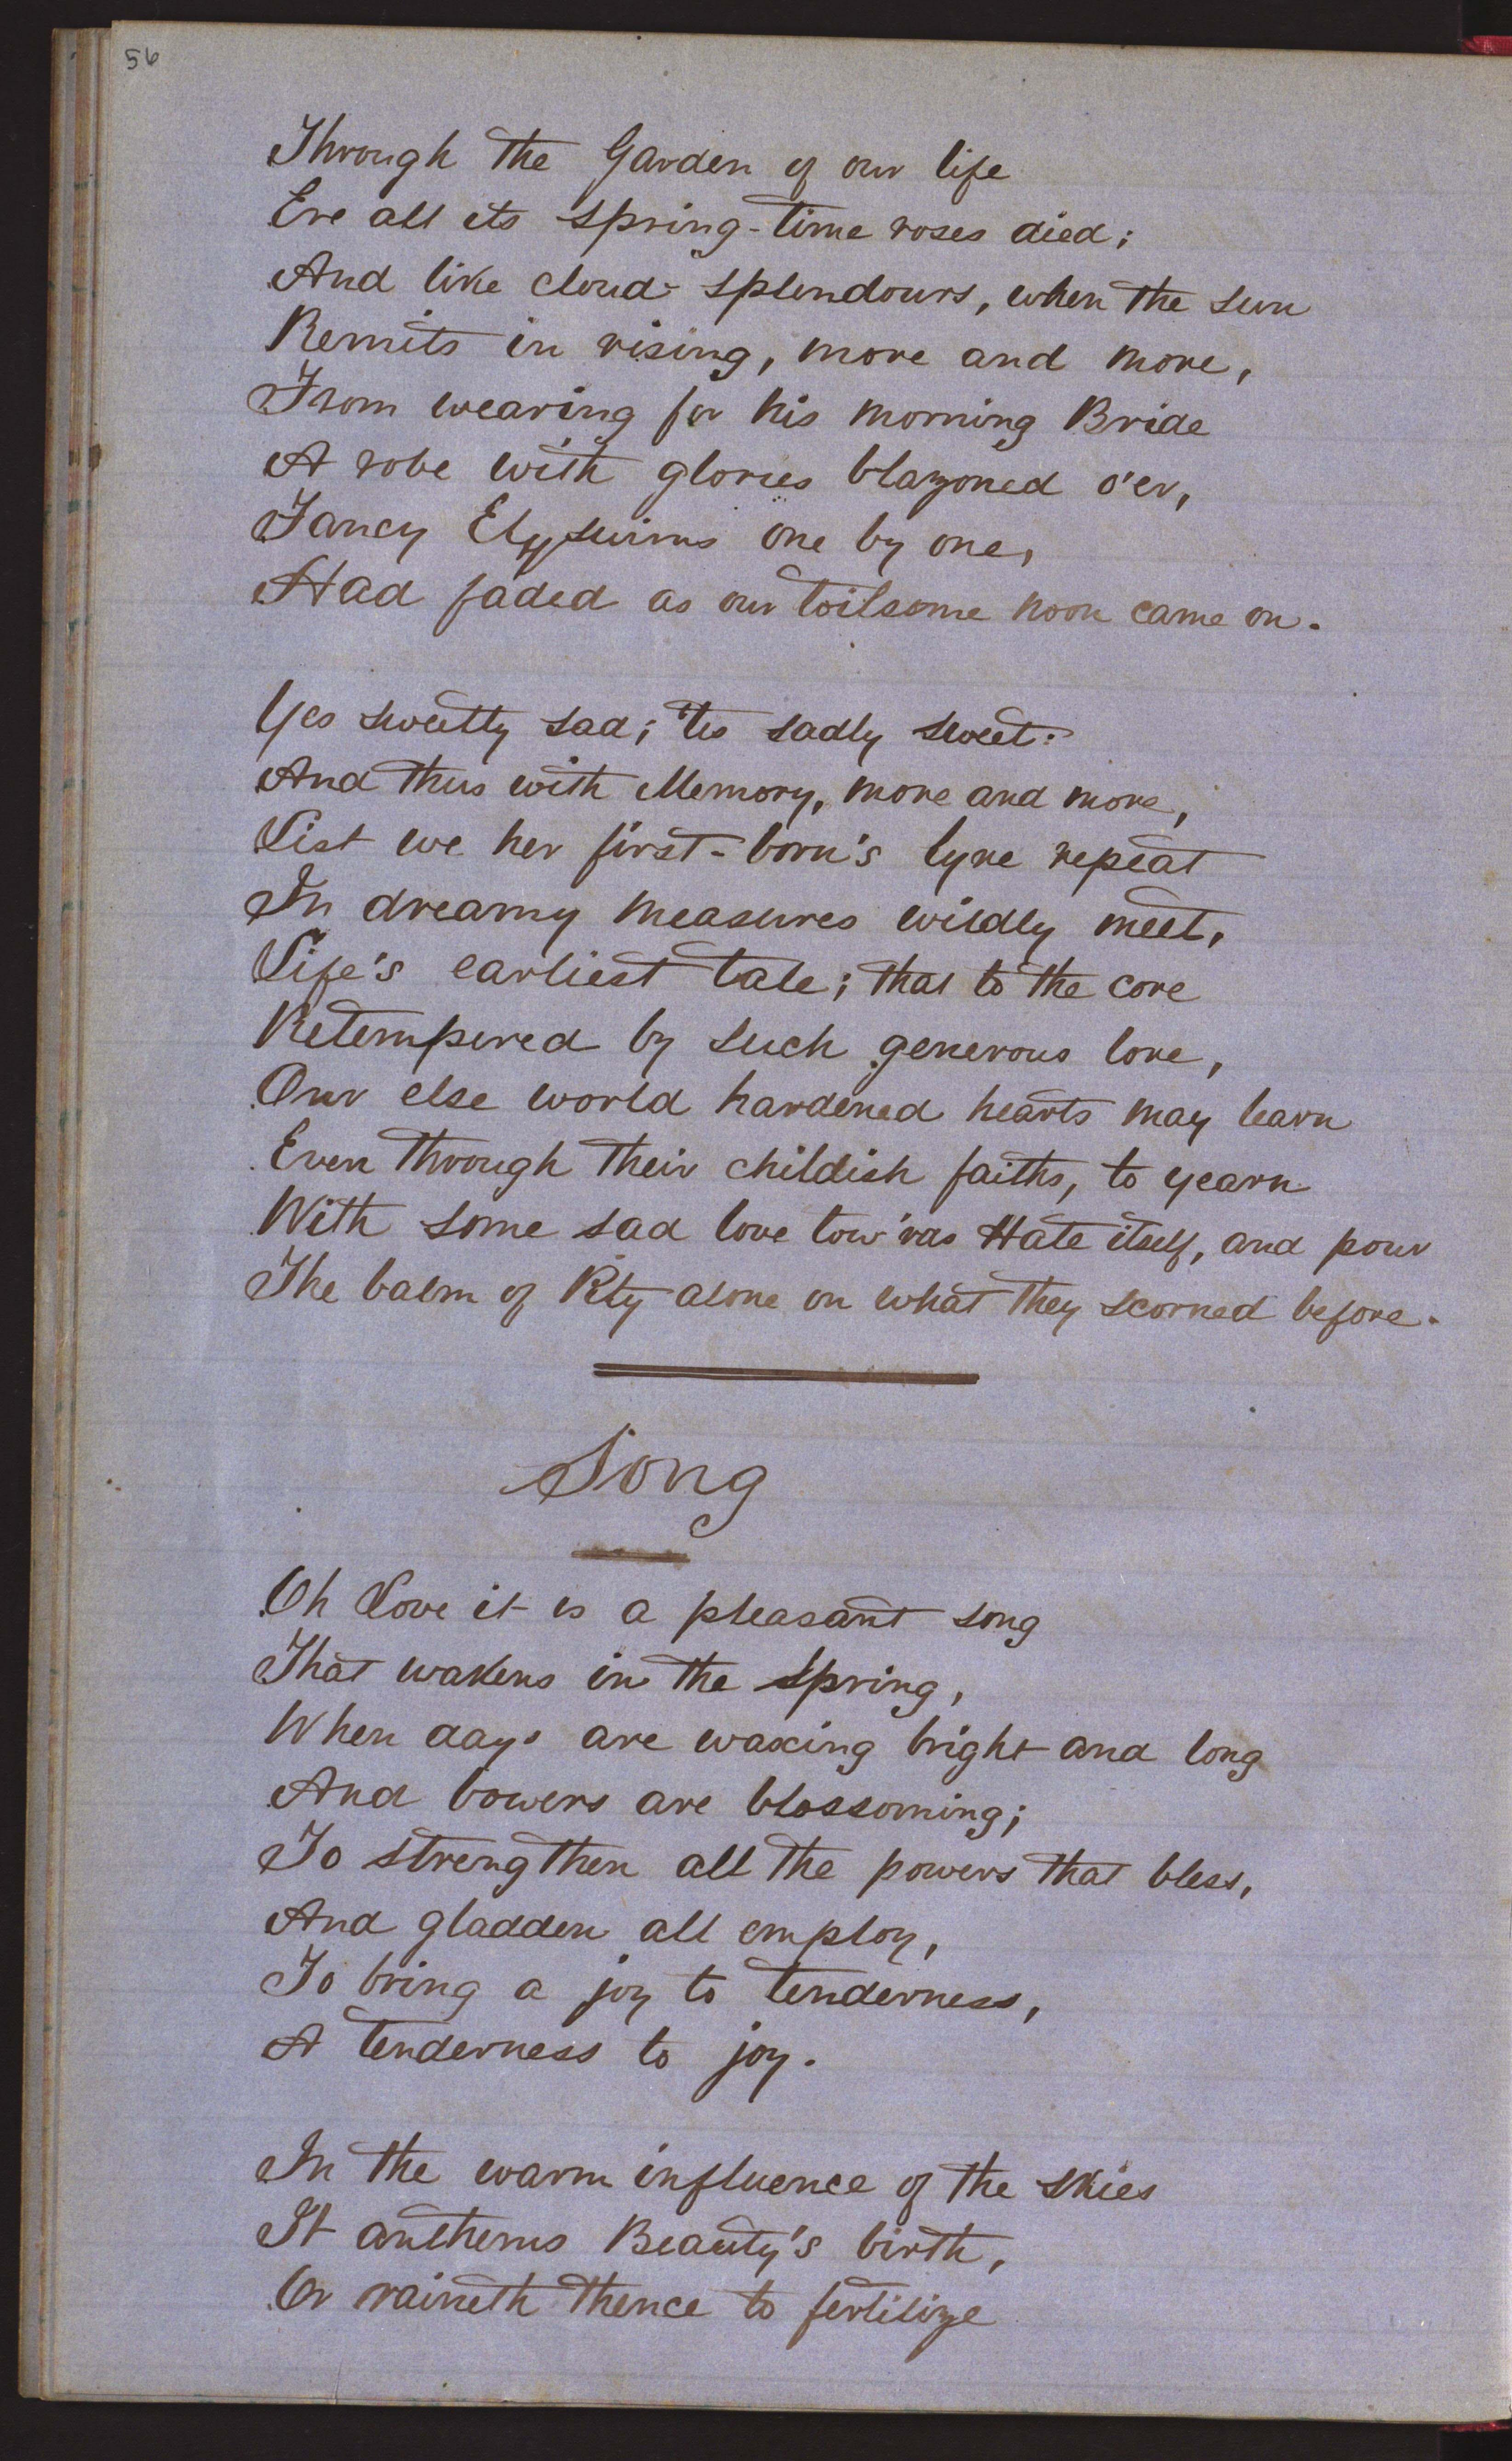 56
Through the Garden of our life
Ere all its spring-time roses died;
And like cloud-splendours, when the sun
Remits in rising, more and more,
From wearing for his morning Bride
A robe with glories blazoned o'er,
Fancy Elysiums one by one,
Had faded as our toilsome noon came on.
Yes sweetly sad; 'tis sadly sweet:
And thus with Memory, more and more,
List we her first-born's lyre repeat
In dreamy measures wildly meet,
Life's earliest tale; that to the core
Retempered by such generous lore,
Our else world hardened hearts may learn
Even through their childish faiths, to yearn
With some sad love tow'rds Hate itself, and pour
The balm of Pity alone on what they scorned before.
Song
Oh Love it is a pleasant song
That wakens in the Spring,
When days are waxing bright and long
And bowers are blossoming;
To strengthen all the powers that bless,
And gladden all employ,
To bring a joy to tenderness,
A tenderness to joy.
In the warm influence of the skies
It anthems Beauty's birth,
Or raineth thence to fertilize